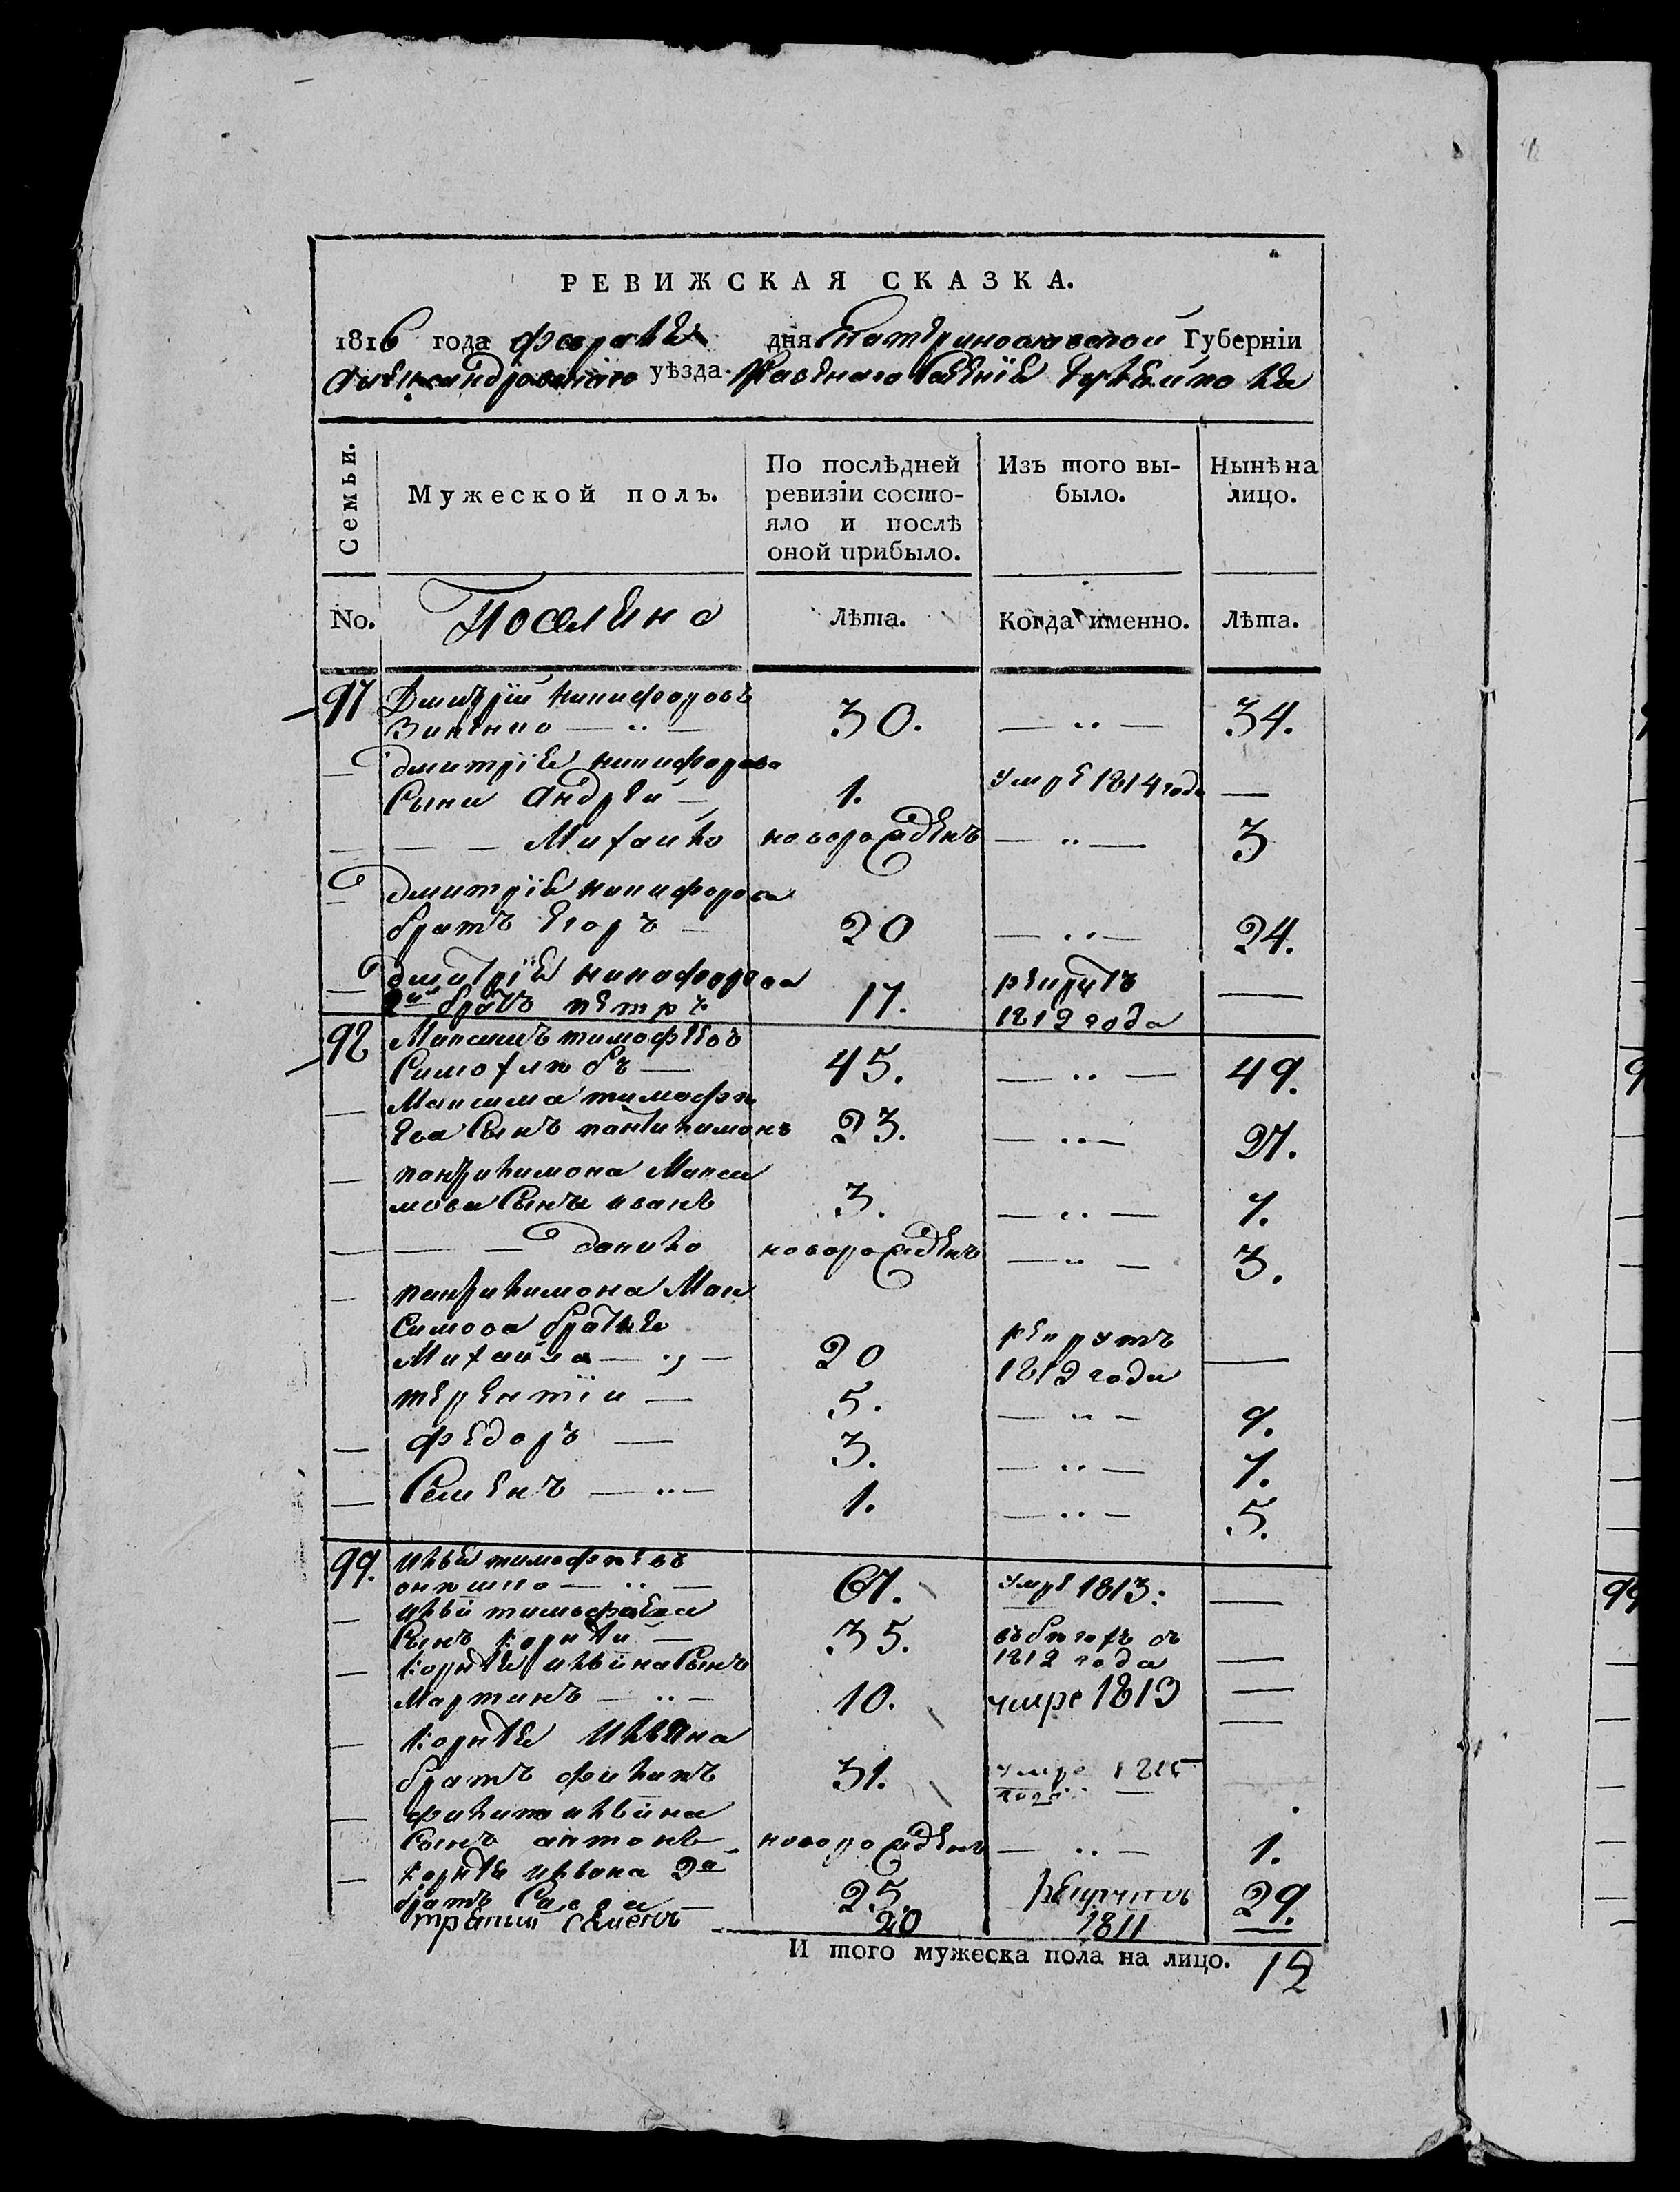 РЕВИЖСКАЯ СКАЗКА.
1816 года февраля дня Екатеринославской Губерніи
Александровскаго уѣзда Казеннаго Селенія
Семьи.
Мужеской полъ.
По послѣдней ревизіи состо-
яло и послѣ
оной прибыло.
Изъ того вы-
было.
Нынѣ на
лицо.
No.
Поселяне
лѣта.
Когда именно.
Лѣта.
97 Дмитрій Никифоровъ
30. — „ — 34.
— Дмитрія Никифорова
Сыны Андрей — 1. умре 1814 года —
— — — Михайло новорожденъ — „ — 3
— Дмитрія Никифорова
братъ Егоръ — 20 — „ — 24.
— Дмитрія Никифорова
2й братъ Петръ 17. рекрутъ
1812 года —
98 Максимъ Тимофѣевъ
45. — „ — 49.
— Максима Тимофѣ
ева Сынъ Пантилимонъ 23. — „ — 27.
— Пантилимона Макси
мова Сынъ Иванъ 3. — „ — 7.
— — — Данило новорожденъ — „ — 3.
— Пантилимона Мак
симова братья
Михайла — „ — 20 рекрутъ
1812 года —
Терентій — 5. — „ — 9.
— Федоръ — 3. — „ — 7.
— Семенъ — „ — 1. — „ — 5.
99. Тимофѣевъ
67. умре 1813. —
— Тимофѣева
Сынъ Корнѣй — 35. въ бѣгахъ съ
1812 года —
— Корнѣя Сынъ
Мартинъ — „ — 10. умре 1813 —
— Корнѣя —
братъ Филипъ 31. умре 1815
года —
— Филипа
Сынъ Антонъ новорожденъ — „ — 1.
— Корнѣя 2й
братъ Савва — 25. 29.
третій Семенъ 20 рекрутъ
1811
И того мужеска пола на лицо. 12